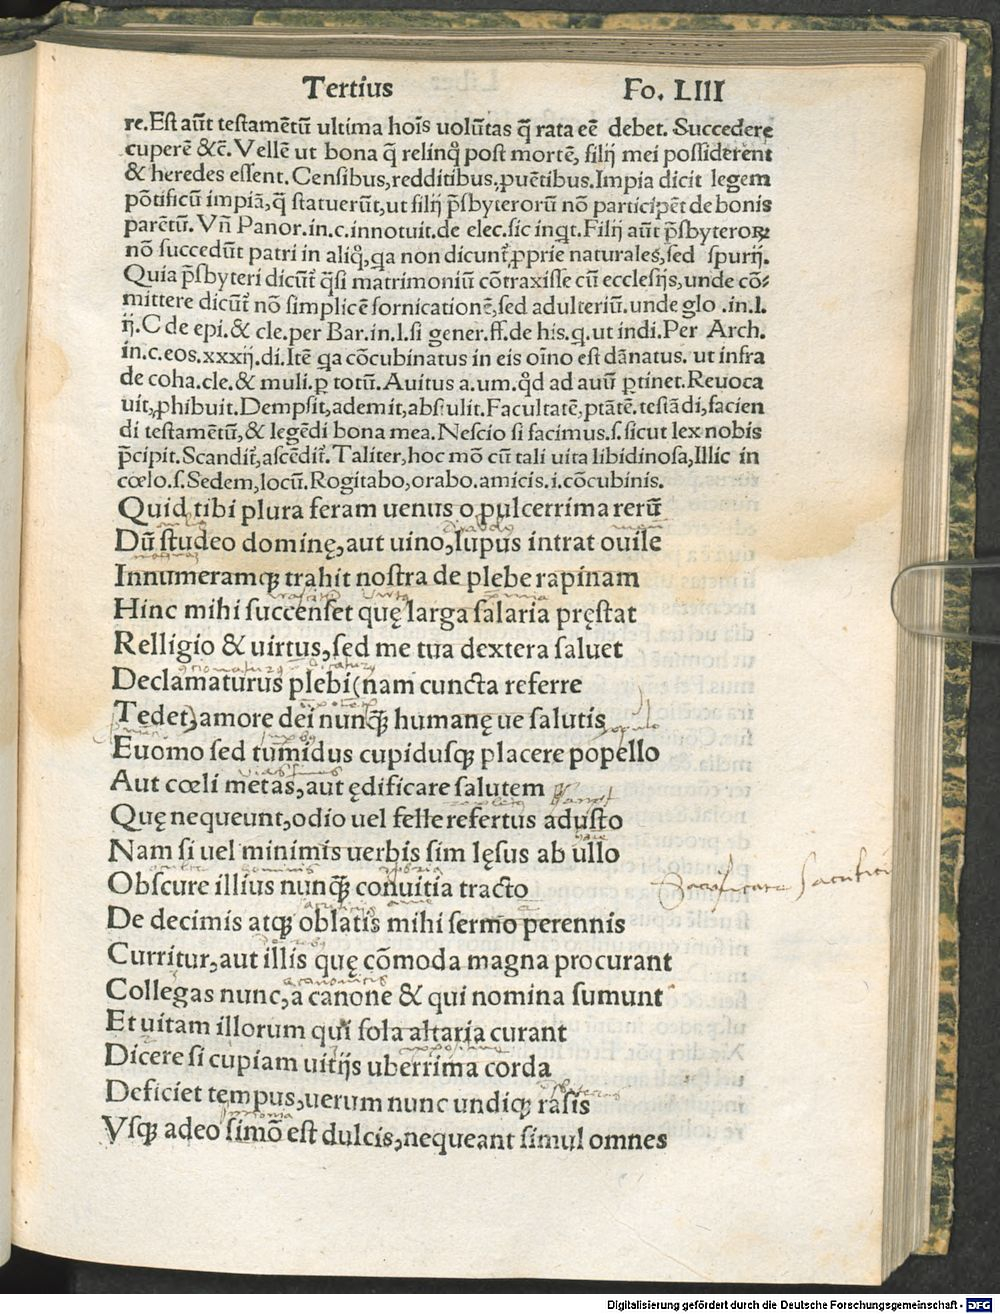 Tertius Fo. LIII
re.Est aũt testamētũ ultima hoĩs uolũtas q̃ rata eē debet. Succedere
cuperē &c̃. Vellē ut bona q̃ relinq̃ post mortē, filij mei possiderent
& heredes essent. Censibus, redditibus, ꝓuētibus. Impia dicit legem
põtificũ impiã, q̃ statuerũt, ut filij p̃sbyterorũ nõ participēt de bonis
parētũ. Vñ Panor. in. c. innotuit. de elec. sic inqt. Filij aũt p̃sbyteroꝝ
nõ succedũt patri in aliq̃, qa non dicunt̃ ꝓprie naturales, sed spurij.
Quia p̃sbyteri dicũt̃ q̃si matrimoniũ cõtraxisse cũ ecclesijs, unde cõ-
mittere dicũt̃ nõ simplicē fornicationē, sed adulteriũ. unde glo .in. l.
ij. C de epi. & cle. per Bar. in. l. si gener. ff. de his. q. ut indi. Per Arch.
in. c. eos. xxxij. di. Itē qa cõcubinatus in eis oĩno est dãnatus. ut infra
de coha. cle. & muli. ꝑ totũ. Auitus a. um. q̃d ad auũ ꝑtinet. Reuoca
uit, ꝓhibuit. Dempsit, ademit, abstulit. Facultatē, ptãtē. testãdi, facien
di testamētũ, & legēdi bona mea. Nescio si facimus. s. sicut lex nobis
p̃cipit. Scandit̃, ascēdit̃. Taliter, hoc mõ cũ tali uita libidinosa, Illic in
cœlo. s. Sedem, locũ. Rogitabo, orabo. amicis. i. cõcubinis.
Quid tibi plura feram uenus o pulcerrima rerũ
Dũ studeo dominę, aut uino, lupus intrat ouile
Innumeramqꝫ trahit nostra de plebe rapinam
Hinc mihi succenset quę larga salaria pręstat
Relligio & uirtus, sed me tua dextera saluet
Declamaturus plebi (nam cuncta referre
Tedet) amore dei nunqꝫ̃ humanę ue salutis
Euomo sed tumidus cupidusqꝫ placere popello
Aut cœli metas, aut ędificare salutem
Quę nequeunt, odio uel felle refertus adusto
Nam si uel minimis uerbis sim lęsus ab ullo
Obscure illius nunqꝫ̃ conuitia tracto
De decimis atqꝫ oblatis mihi sermo perennis
Curritur, aut illis quę cõmoda magna procurant
Collegas nunc, a canone & qui nomina sumunt
Et uitam illorum qui sola altaria curant
Dicere si cupiam uitijs uberrima corda
Deficiet tempus, uerum nunc undiqꝫ rasis
Vsqꝫ adeo simõ est dulcis, nequeant simul omnes
Digitalisierung gefördert durch die Deutsche Forschungsgemeinschaft - DFG